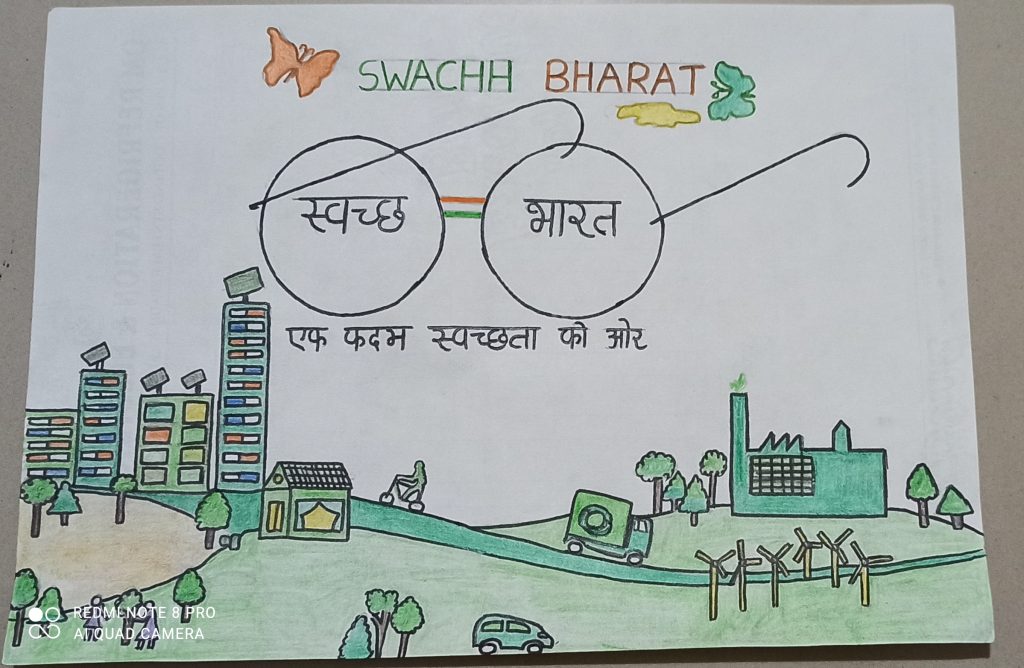 SWACHH BHARAT
स्वच्छ भारत
एक कदम स्वच्छता की ओर
REDMI NOTE 8 PRO
AI QUAD CAMERA